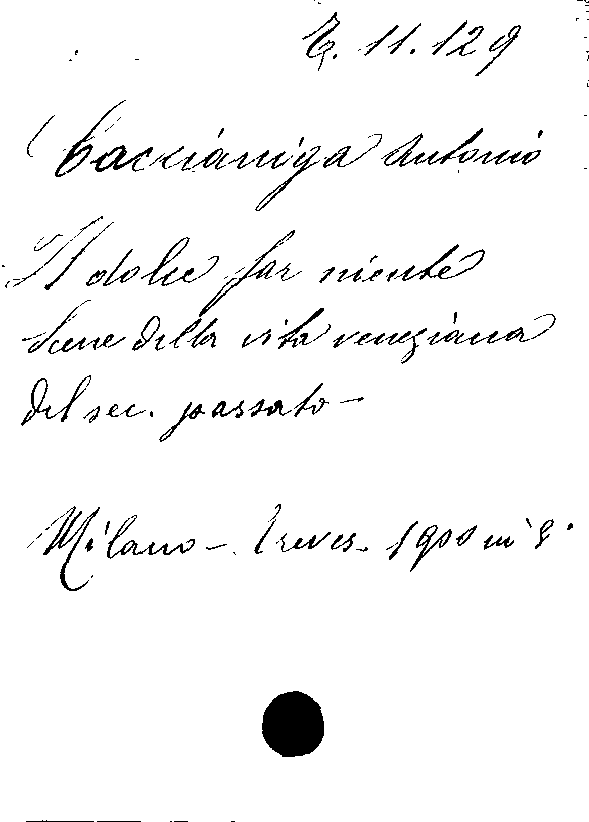 E. 11. 129
Caccianiga Antonio
Il dolce far niente
Scene della vita veneziana
del sec. passato -
Milano - Treves - 1900 in 8°